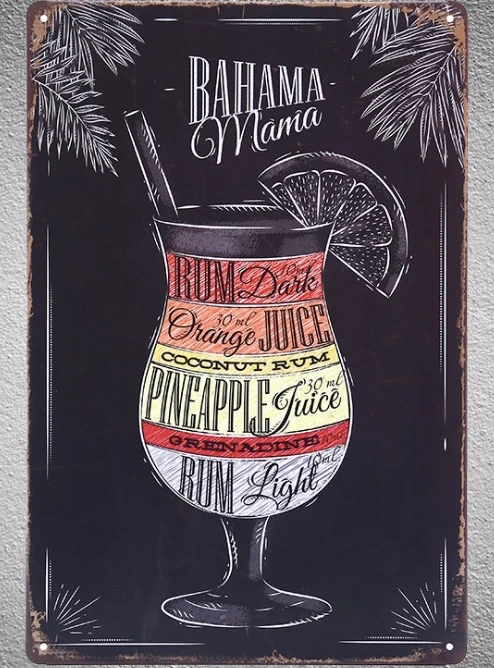 BAHAMA
Mama
RUM Dark
Orange 30 ml JUICE
COCONUT RUM
PINEAPPLE Juice 30 ml
GRENADINE 10 ml
RUM Light 10 ml